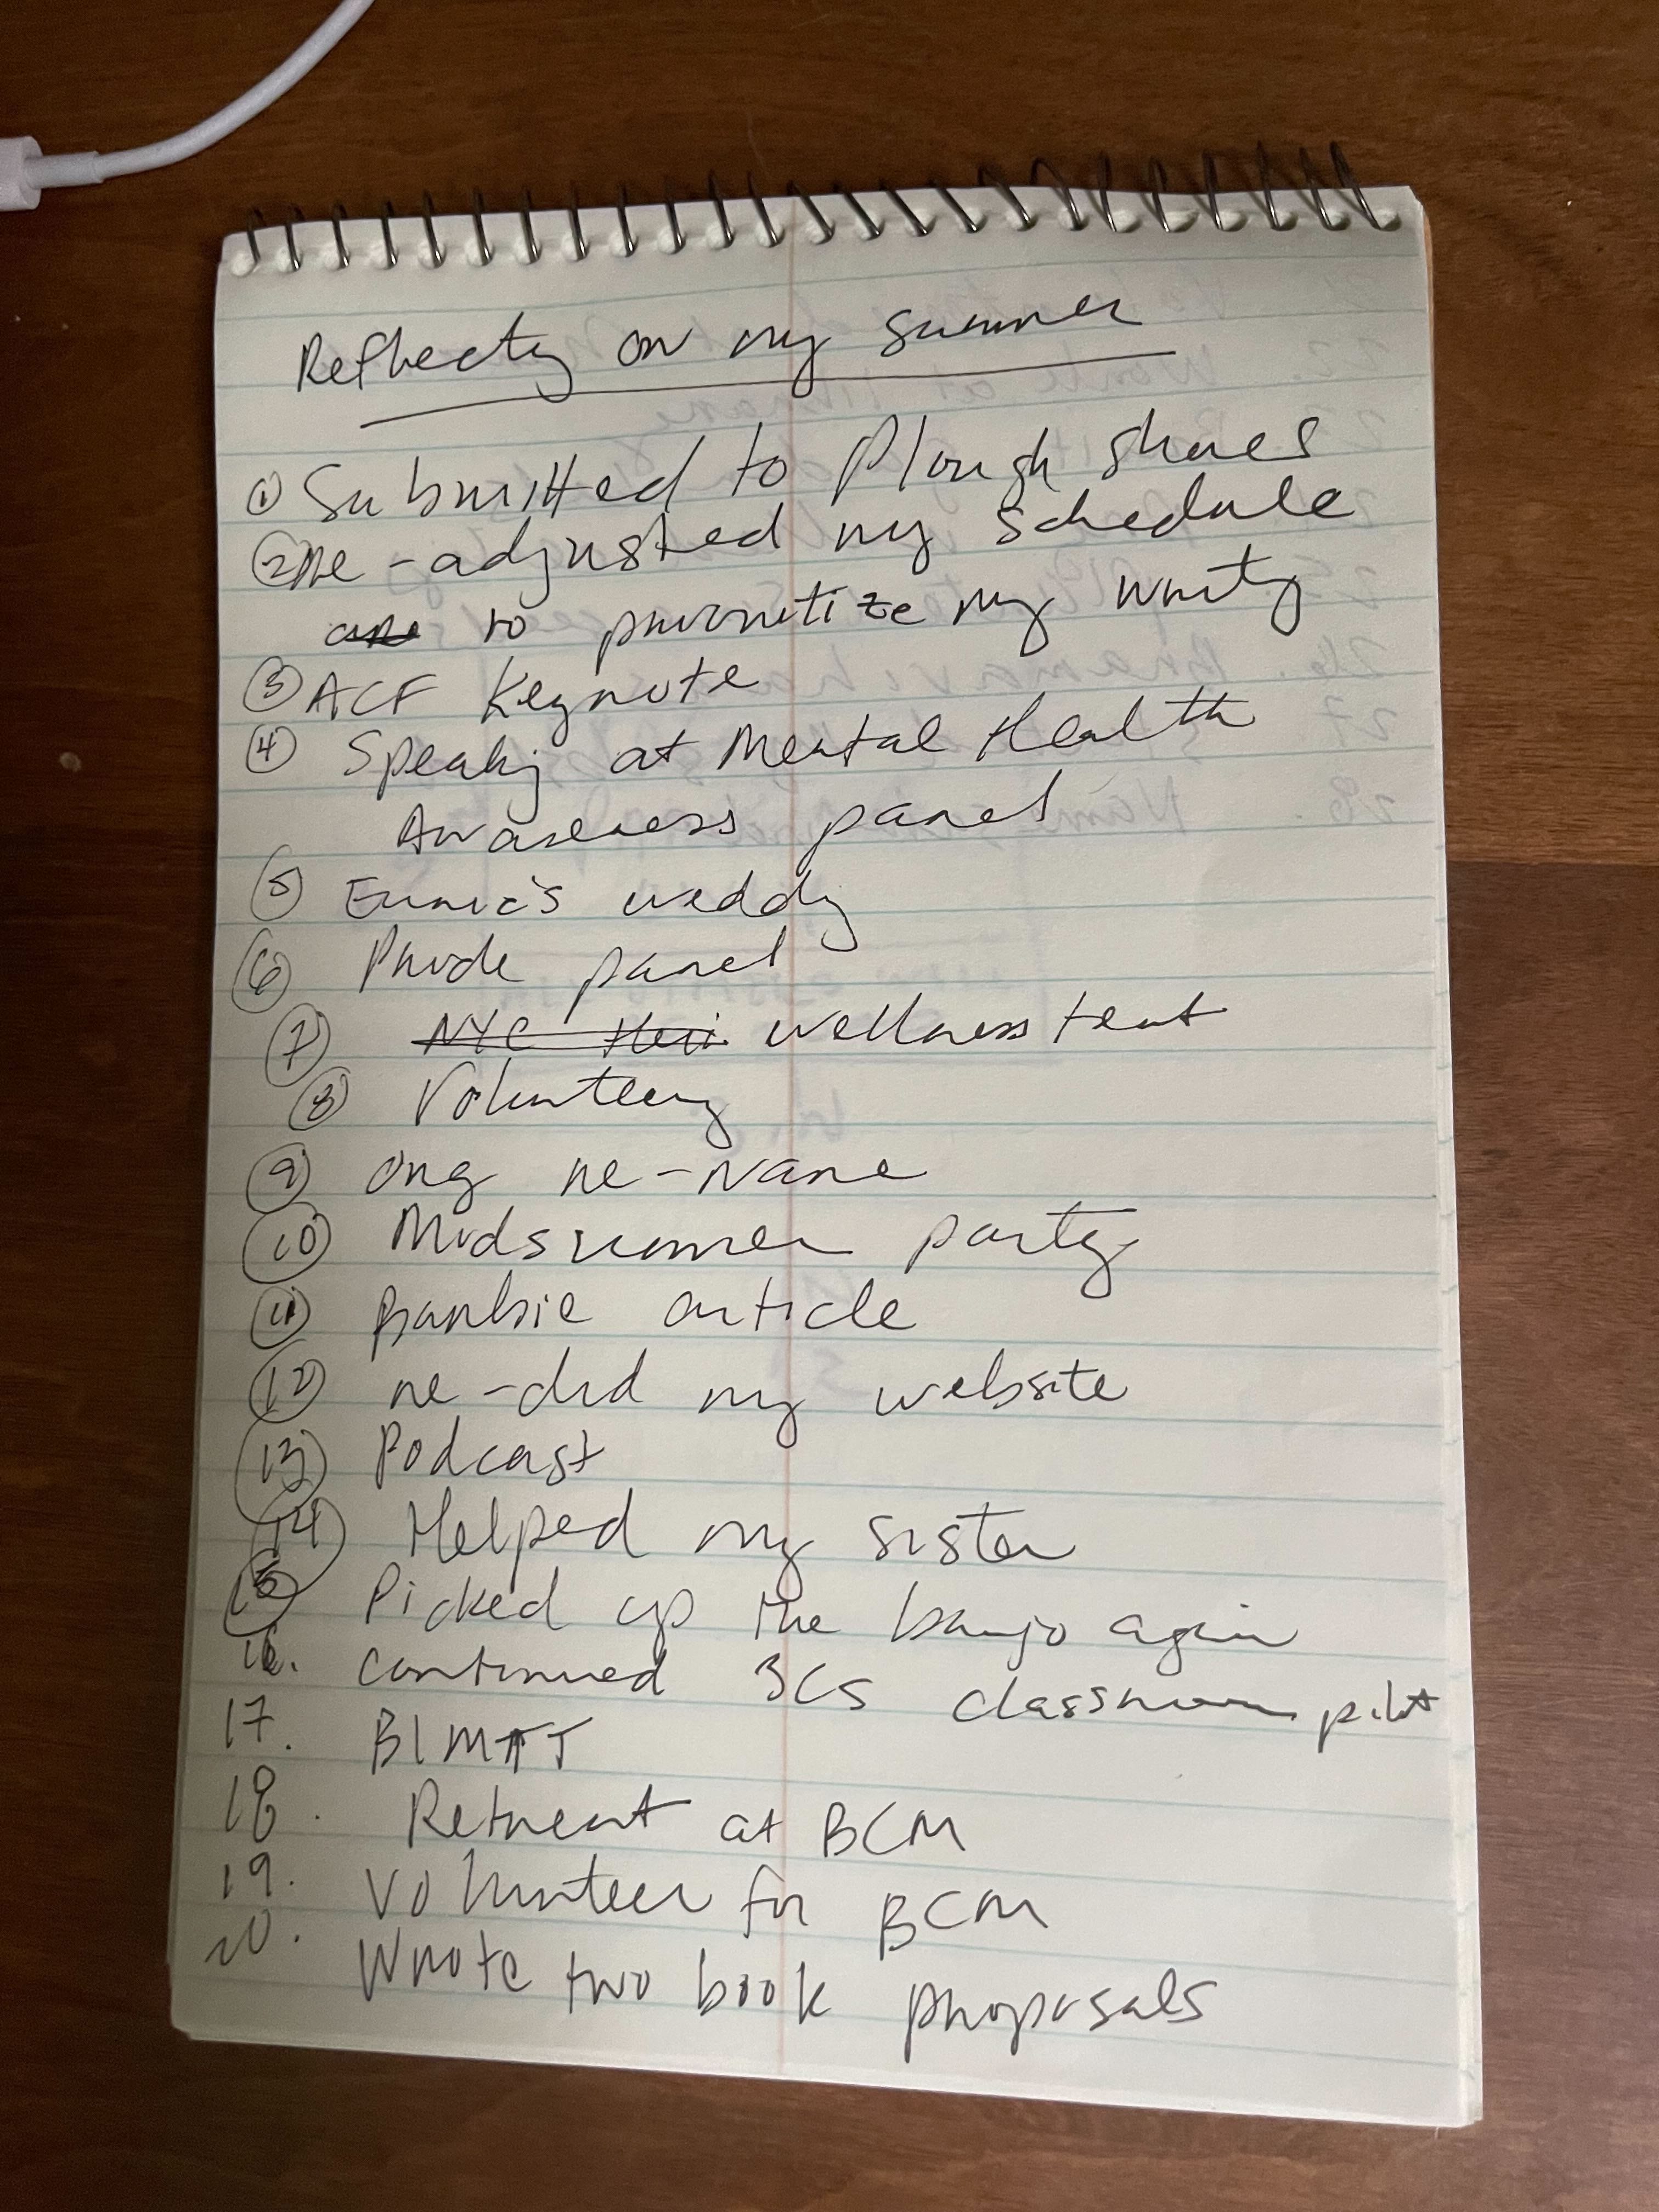 Reflecting on my summer
① Submitted to Plough shares
② Re-adjusted my schedule
to prioritize my writing
③ ACF Keynote
④ Speaking at Mental Health
Awareness panel
⑤ wedding
⑥ Pride panel
⑦ NYC wellness tent
⑧ Volunteering
⑨ Org re-name
⑩ Midsummer party
⑪ Barbie article
⑫ re-did my website
⑬ Podcast
⑭ Helped my sister
⑮ Picked up the banjo again
16. continued 3Cs classroom pilot
17.
18. Retreat at BCM
19. Volunteer for BCM
20. Wrote two book proposals